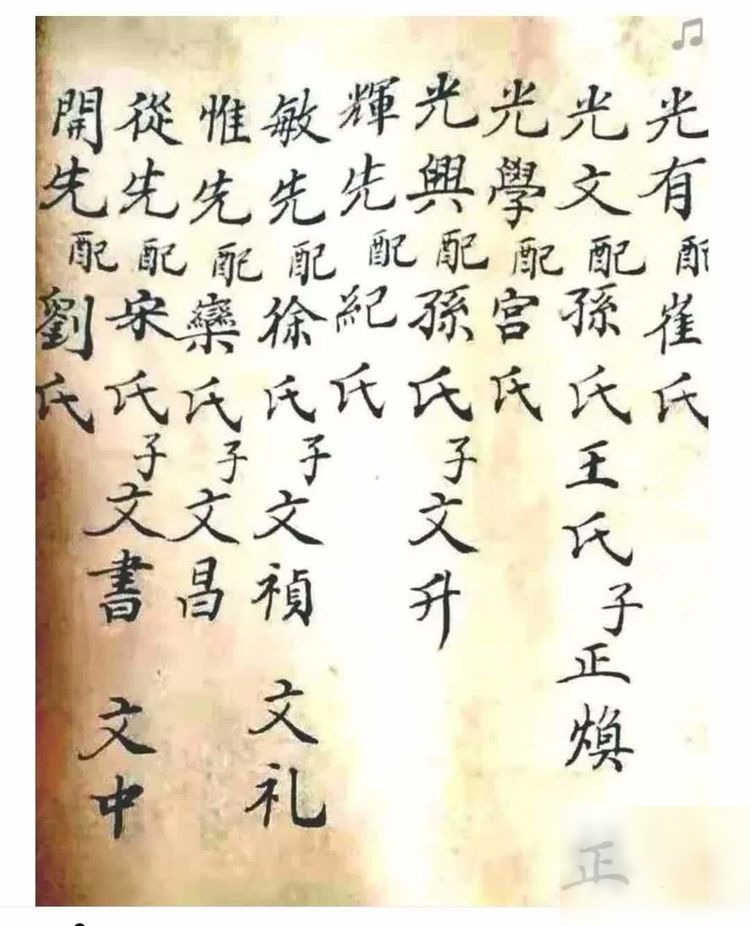 光有配崔氏
光文配孫氏王氏子正煥 正
光學配宮氏
光興配孫氏子文升
輝先配紀氏
敏先配徐氏子文禎 文礼
惟先配欒氏子文昌
從先配宋氏子文書 文中
開先配劉氏